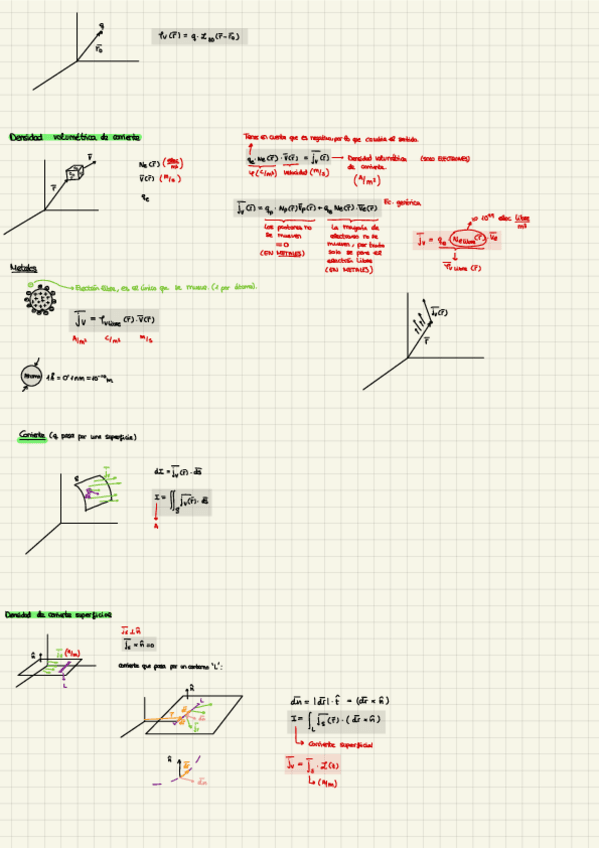 q
r̄₀
ρv(r̄) = q · δ3D(r̄-r̄₀)
Densidad volumétrica de corriente
Tener en cuenta que es negativa, por lo que cambia el sentido.
v̄
r̄
Ne(r̄) (elec/m³)
v̄(r̄) (m/s)
qe
qe · Ne(r̄) · v̄(r̄) = j̄v(r̄) → Densidad volumétrica de corriente (SOLO ELECTRONES)
ρ(C/m³) velocidad (m/s)
(A/m²)
j̄v(r̄) = qp · Np(r̄)v̄p(r̄) + qe Ne(r̄) · v̄e(r̄)
Ec. genérica.
Los protones no
se mueven
= 0
(EN METALES)
La mayoría de
electrones no se
mueven, por tanto
solo se pone el
electrón libre
(EN METALES)
elec libre/m³
j̄v = qe Ne libre(r̄) · v̄e
ρv libre (r̄)
Metales
Electrón libre, es el único que se mueve. (1 por átomo).
j̄v = ρv libre(r̄) · v̄(r̄)
A/m² C/m³ m/s
j̄v(r̄)
r̄
Átomo
1Å = 0'1nm = 10⁻¹⁰m
Corriente (q pasa por una superficie)
S
dI = j̄v(r̄) · ds̄
I = ∬s j̄v(r̄) · ds̄
A
Densidad de corriente superficial
n̂
j̄s (A/m)
L
j̄s ⊥ n̂
j̄s · n̂ = 0
corriente que pasa por un contorno "L":
n̂
L
dn̄ = |dr̄| · t̂ = (dr̄ × n̂)
I = ∫L j̄s(r̄) · (dr̄ × n̂)
Corriente superficial
n̂
dr̄
dn̄
j̄v = j̄s · δ(z)
(A/m)